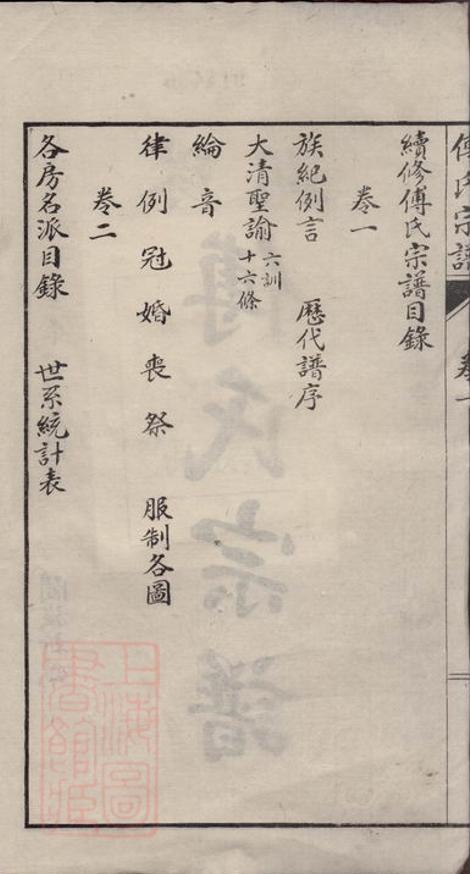 傅氏宗譜 卷一
續修傅氏宗譜目錄
卷一
族紀例言 歷代譜序
大清聖諭 六訓 十六條
綸音
律例冠婚喪祭 服制各圖
卷二
各房名派目錄 世系統計表
傅氏宗譜
上海圖書館藏